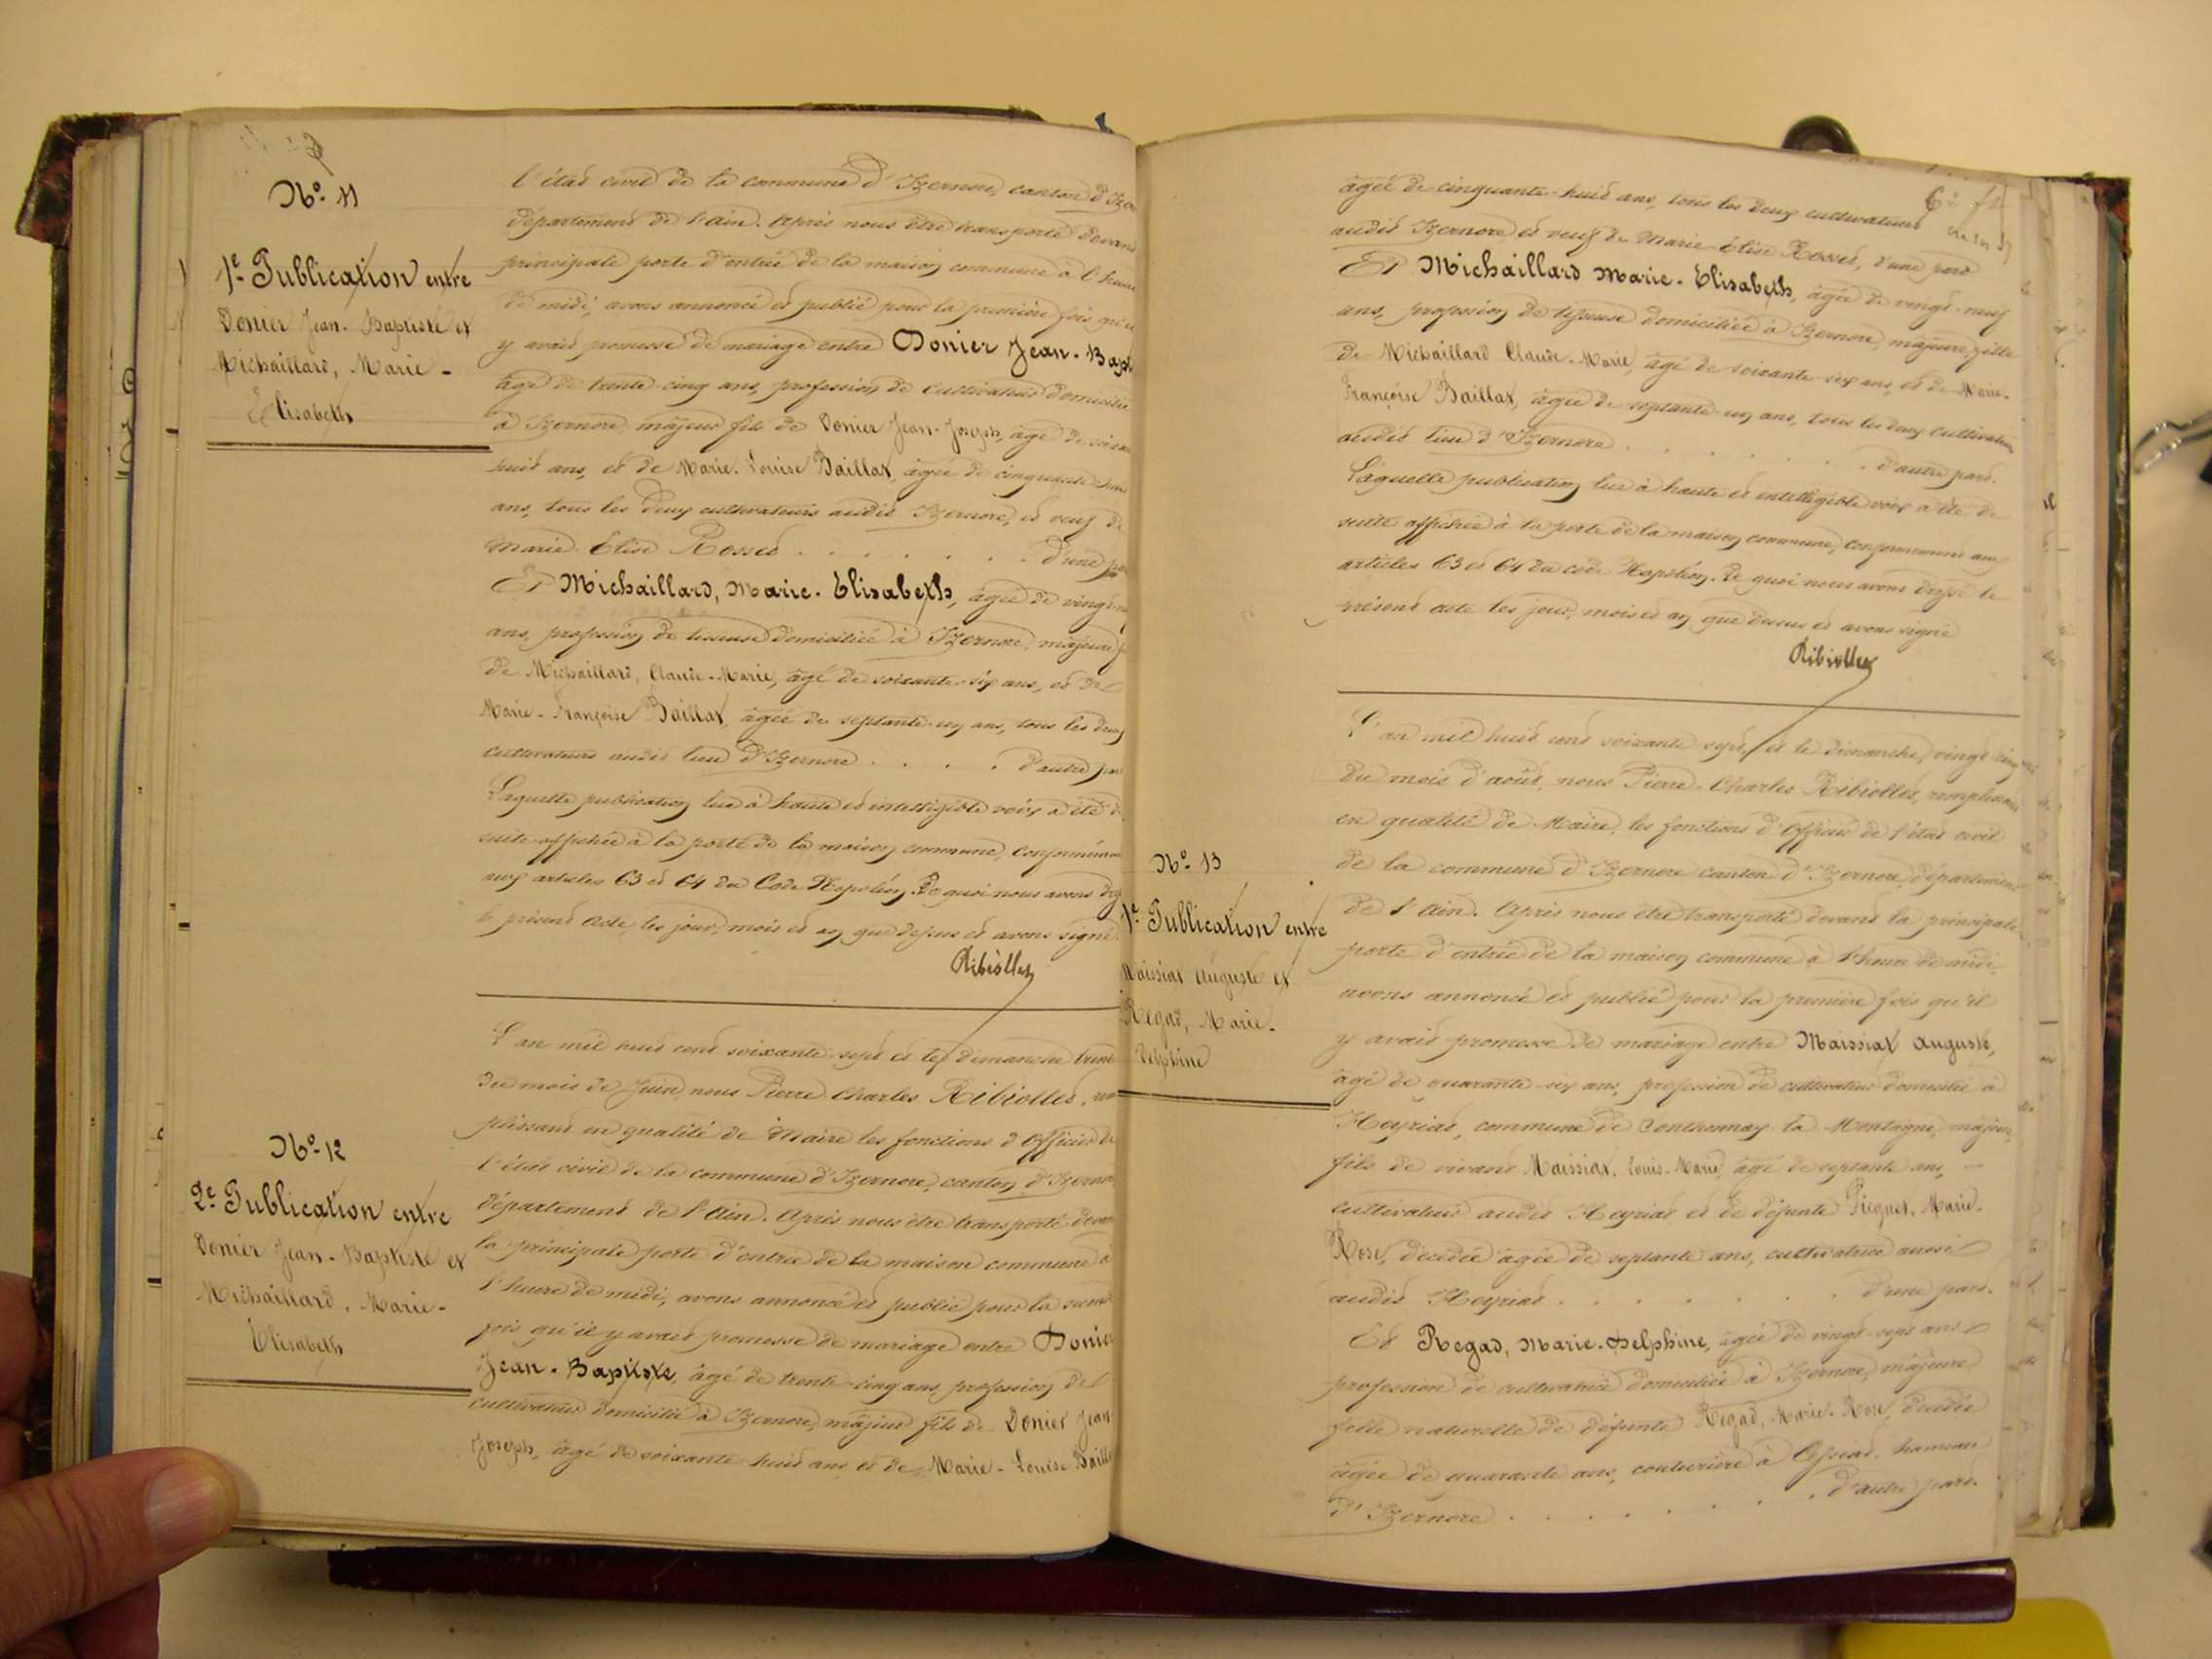 Nº 11
1e Publication entre
Donier Jean-Baptiste et
Michaillard, Marie-
Elisabeth
l'état civil de la commune d'Izernore, canton d'Izer
département de l'Ain. Après nous être transporté devant
principale porte d'entrée de la maison commune à l'heure
de midi, avons annoncé et publié pour la première fois qu'il
y avait promesse de mariage entre Donier Jean-Bapt
âgé de trente-cinq ans, profession de cultivateur domicilié
à Izernore, majeur fils de Donier Jean-Joseph, âgé de soixan
huit ans, et de Marie-Louise Baillat, âgée de cinquante-huit
ans, tous les deux cultivateurs audit Izernore, et veuf de
Marie-Elise Rosset . . . . . . . d'une pa
Et Michaillard, Marie-Elisabeth, âgée de vingt-n
ans, profession de tisseuse domiciliée à Izernore, majeure f
de Michaillard, Claude-Marie, âgé de soixante-six ans, et de
Marie-Françoise Baillat, âgée de septante-un ans, tous les deux
cultivateurs audit lieu d'Izernore . . . . d'autre par
Laquelle publication lue à haute et intelligible voix a été d
suite affichée à la porte de la maison commune, conformémen
aux articles 63 et 64 du Code Napoléon. De quoi nous avons dre
le présent acte, les jour, mois et an que dessus et avons signé
Ribiollet
Nº 12
2e Publication entre
Donier Jean-Baptiste et
Michaillard, Marie-
Elisabeth
L'an mil huit cent soixante-sept et le dimanche trente
du mois de Juin, nous Pierre-Charles Ribiollet, rem
plissant en qualité de Maire les fonctions d'Officier de
l'état civil de la commune d'Izernore, canton d'Izernor
département de l'Ain. Après nous être transporté devant
la principale porte d'entrée de la maison commune à
l'heure de midi, avons annoncé et publié pour la second
fois qu'il y avait promesse de mariage entre Donier
Jean-Baptiste, âgé de trente-cinq ans, profession de
cultivateur domicilié à Izernore, majeur fils de Donier Jean-
Joseph, âgé de soixante-huit ans et de Marie-Louise Baill
62 ft
âgée de cinquante-huit ans, tous les deux cultivateurs
audit Izernore et veuf de Marie-Elise Rosset, d'une part
Et Michaillard Marie-Elisabeth, âgée de vingt-neuf
ans, profession de tisseuse domiciliée à Izernore, majeure, fille
de Michaillard Claude-Marie, âgé de soixante-six ans, et de Marie-
Françoise Baillat, âgée de septante-un ans, tous les deux cultivateurs
audit lieu d'Izernore . . . . . . . d'autre part.
Laquelle publication lue à haute et intelligible voix a été de
suite affichée à la porte de la maison commune, conformément aux
articles 63 et 64 du code Napoléon. De quoi nous avons dressé le
présent acte les jour, mois et an que dessus et avons signé
Ribiollet
Nº 13
1e Publication entre
Maissiat Auguste et
Regad, Marie-
Delphine
L'an mil huit cent soixante-sept, et le dimanche, vingt-cinq
du mois d'août, nous Pierre-Charles Ribiollet, remplissant
en qualité de Maire, les fonctions d'Officier de l'état civil
de la commune d'Izernore canton d'Izernore, département
de l'Ain. Après nous être transporté devant la principale
porte d'entrée de la maison commune à l'heure de midi,
avons annoncé et publié pour la première fois qu'il
y avait promesse de mariage entre Maissiat Auguste,
âgé de quarante-six ans, profession de cultivateur domicilié à
Heyriat, commune de Sonthonnax-la-Montagne, majeur,
fils de vivant Maissiat, Louis-Marie, âgé de septante ans,
cultivateur audit Heyriat et de défunte Picquet, Marie-
Rose, décédée âgée de septante ans, cultivatrice aussi
audit Heyriat . . . . . . . . d'une part.
Et Regad, Marie-Delphine, âgée de vingt-sept ans
profession de cultivatrice domiciliée à Izernore, majeure
fille naturelle de défunte Regad, Marie-Rose, décédée
âgée de quarante ans, couturière à Cessiat, hameau
d'Izernore . . . . . . . . d'autre part.